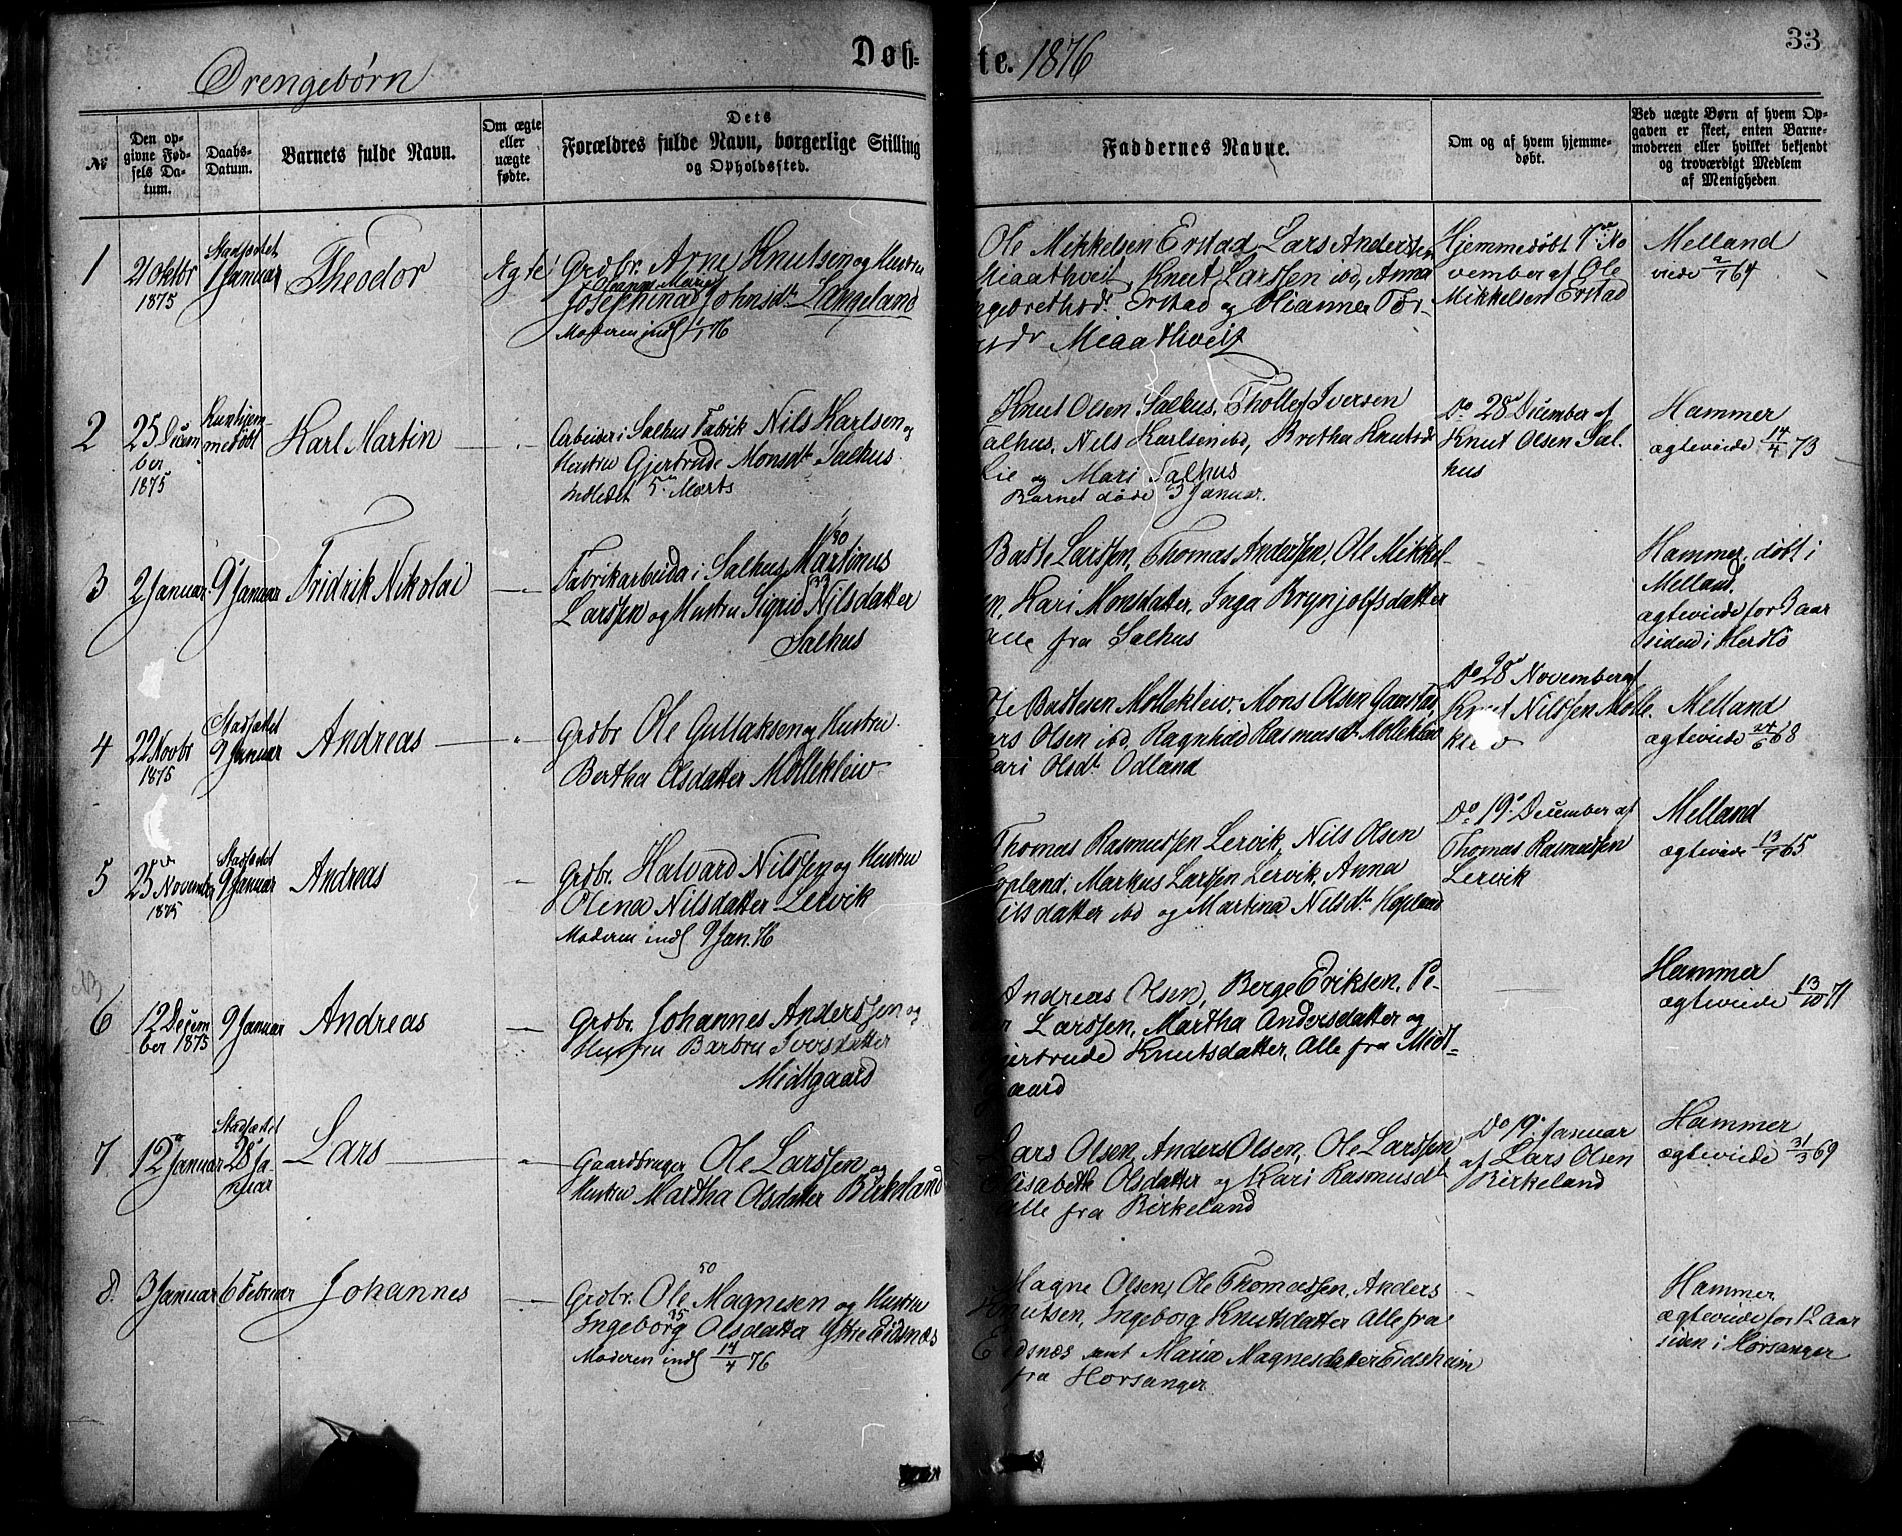 Døb=
te. 1876
33
Drengebørn
№
Den op-
givne Fød-
sels Da-
tum.
Daabs-
Datum.
Barnets fulde Navn.
Om ægte
eller
uægte
fødte.
Dets
Forældres fulde Navn, borgerlige Stilling
og Opholdssted.
Faddernes Navne.
Om og af hvem hjemme-
døbt.
Ved uægte Børn af hvem Op-
gaven er skeet, enten Barne-
moderen eller hvilket bekjendt
og troværdigt Medlem
af Menigheden
1
21 Oktbr
1875
Stadfæstet
1 Januar
Theodor
Ægte
Grdbr. Arne Knutsen og Hustru
Johanna Marie
Josephina Johnsdr. Langeland
Moderen indl 1/1 76
Ole Mikkelsen Erstad, Lars Andersen
Miaathveit, Knut Larssen ibd, Anna
Erstad og
Miaathveit
Hjemmedøbt 7de No
vember af Ole
Mikkelsen Erstad
Melland
viede 2/1 64
2
25 Decem
ber
1875
Kun hjem-
medøbt
Karl Martin
Arbeider i Salhus Fabrik Nils Karlsen og
Hustru Gjertrude Monsdr Salhus.
Indledet 5te Marts
Knut Olsen Salhus, Thollef Iversen
Salhus, Nils Karlsen ibd, Bretha Knutsdr
Lie og Mari Salhus
Barnet døde 3 Januar.
Do 28de December af
Knut Olsen Sal-
hus
Hammer
ægteviede 14/4 73
3
2 Januar
9 Januar
Fridrik Nikolai
Fabrikarbeider i Salhus Martinus
Larssen og Hustru Sigrid Nilsdatter
Salhus
Baste Larssen, Thomas Anderssen, Ole Mikkel-
en, Kari Monsdatter, Inga Brynjolfsdatter
alle fra Salhus
Hammer, døbt i
Melland.
ægteviede for 3 aar
siden i Herdlø
4
22 Novbr
1875
Stadfæstet
9 Januar
Andreas
Grdbr Ole Gullaksen og Hustru
Bertha Olsdatter Mollekleiv
Ole Bastesen Mollekleiv, Mons Olsen
Lars Olsen ibd, Ragnhild Rasmusdr Mollekleiv
Kari Olsdr. Odland
Do 28de November af
Knut Nilssen Molle-
kleiv
Melland
ægteviede 24/6 68
5
25 November
1875
Stadfæstet
9 Januar
Andreas
Grdbr. Halvard Nilssen og Hustru
Olena Nilsdatter Lervik
Moderen indl 9 Jan. 76
Thomas Rasmussen Lervik, Nils Olsen
Hopland, Markus Larssen Lervik, Anna
Nilsdatter ibd og Martina Nilsdr. Hopland
Do 19de December af
Thomas Rasmussen
Lervik
Melland
ægteviede 65
NB
6
12 Decem
ber 1875
9 Januar
Andreas
Grdbr. Johannes Anderssen og
Hustru Barbru Iversdatter
Midtgaard
Andreas Olsen, Berge Eriksen, Pe-
der Larssen, Martha Andersdatter og
Gjertrude Knutsdatter, Alle fra Midt-
gaard
Hammer
ægteviede 13/10 71
7
12 Januar
Stadfæstet
28 Ja-
nuar
Lars
Gaardbruger Ole Larssen og
Hustru Martha Olsdatter Birkeland
Lars Olsen, Anders Olsen, Ole Larssen
Elisabeth Olsdatter og Kari Rasmusdr
alle fra Birkeland
Do 19de Januar
af Lars Olsen
Birkeland
Hammer
ægteviede 31/3 69
8.
3 Januar
6 Februar
Johannes
50
Grdbr. Ole Magnesen og Hustru
35
Ingeborg Olsdatter Ytre Eidsnæs
Moderen indl 14/4 76
Magne Olsen, Ole Thomassen, Anders
Knutsen, Ingeborg Knutsdatter Alle fra
Eidsnæs samt Maria Magnesdatter Eidsheim
fra Horsanger
Hammer
ægteviede for 12 aar
siden i Horsanger